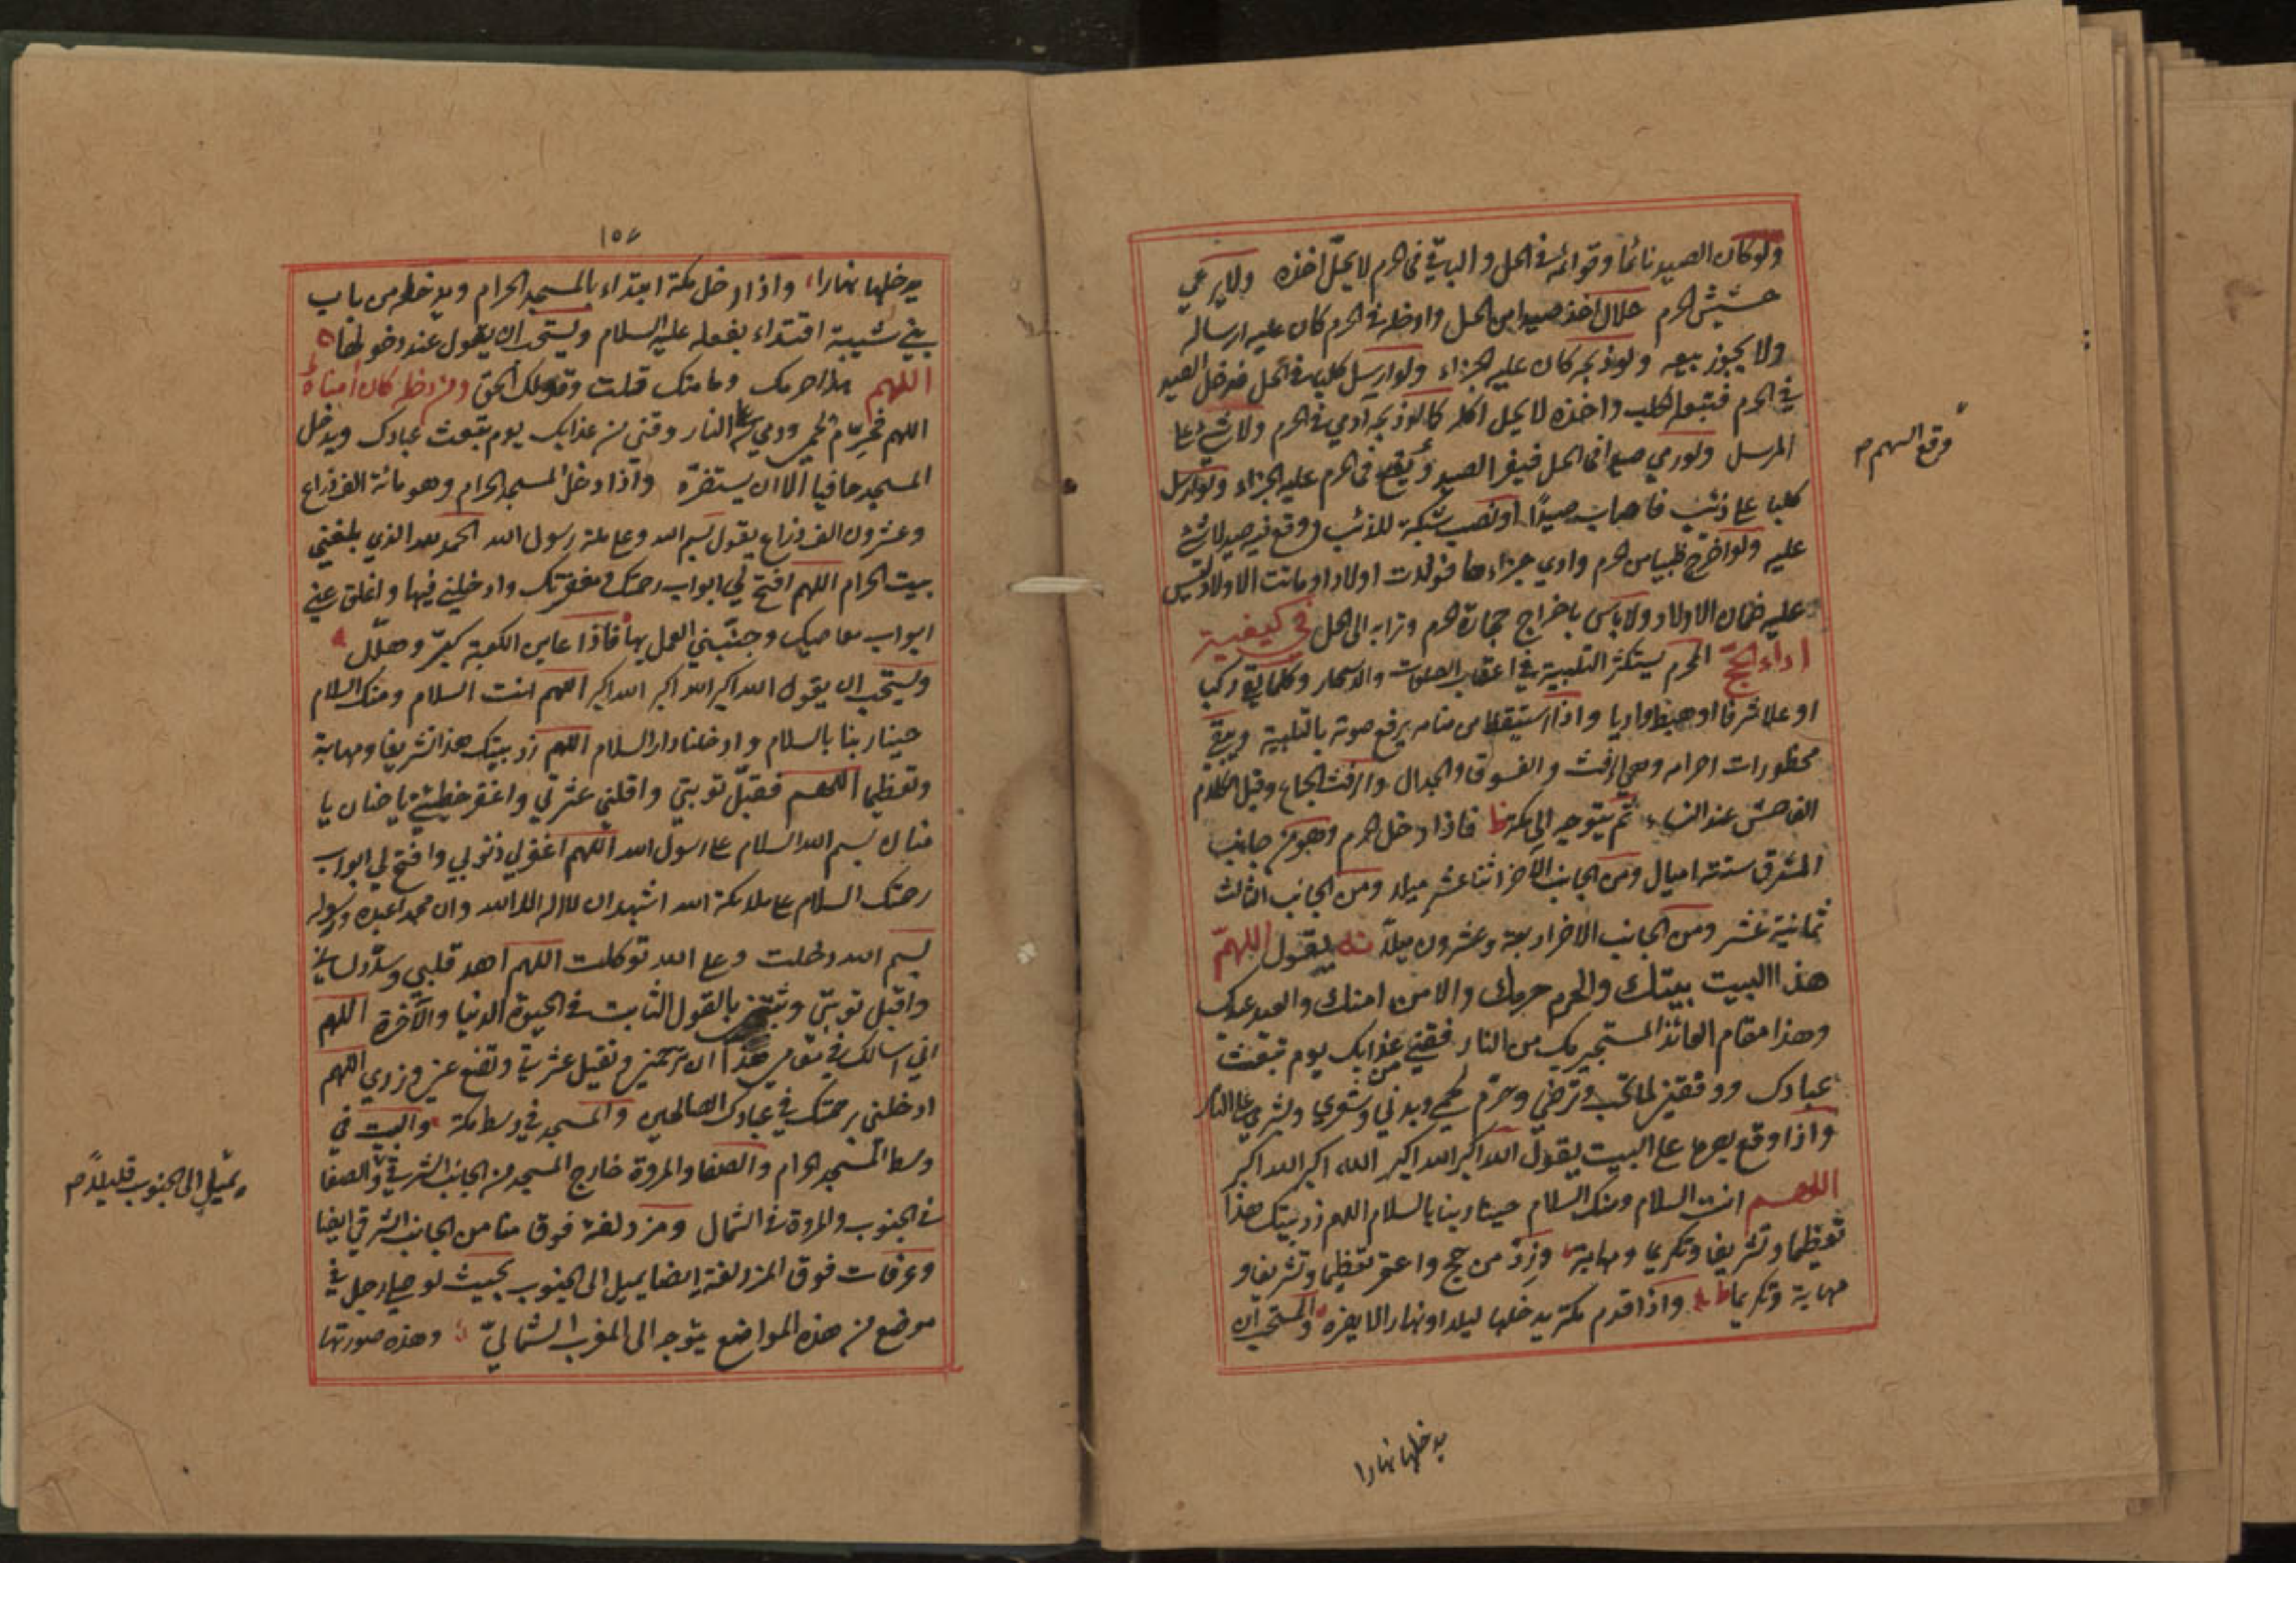 ولو كان الصيد نائما وقوائمه في الحل والباقي في الحرم لا يحل اخذه ولا يرعي
حشيش الحرم حلال اخذ صيدا من الحل وادخله في الحرم كان عليه ارساله
ولا يجوز بيعه ولو ذبحه كان عليه الجزاء ولو ارسل كلبه في الحل فدخل الصيد
في الحرم فتبعه الكلب واخذه لا يحل اكله كما لو ذبحه آدمي في الحرم ولا شئ على
المرسل ولو رمي صيدا في الحل فيفر الصيد و يقع في الحرم عليه الجزاء ولو ارسل
وقع السهم م
كلبا على ذئب فاصاب صيدًا او نصب شبكة للذئب ووقع فيه صيد لا شئ
عليه ولو اخرج ظبيا من الحرم وادي جزاءها فولدت اولادا وماتت الاولاد ليس
عليه ضمان الاولاد ولا بأس باخراج حجارة الحرم وترابه الى الحل في كيفية
اداء الحج المحرم يستكثر التلبية في اعقاب الصلوات والاسحار وكلما لقي ركبا
او علا شرفا او هبط واديا واذا استيقظ من منامه يرفع صوته بالتلبية ويتقي
محظورات احرامه وهي الرفث والفسوق والجدال والرفث الجماع وقيل الكلام
الفاحش عند النساء ثم يتوجه الى مكة فاذا دخل الحرم وهو من جانب
المشرق ستة اميال ومن الجانب الآخر اثنا عشر ميلا ومن الجانب الثالث
ثمانية عشر ومن الجانب الاخر اربعة وعشرون ميلاً يقول اللهمّ
هذا البيت بيتك والحرم حرمك والامن امنك والعبد عبدك
وهذا مقام العائذ المستجير بك من النار فقني من عذابك يوم تبعث
عبادك ووفقني لما تحب وترضي وحرّم لحمي وبدني وشعري وبشري على النار
واذا وقع بصره على البيت يقول الله اكبر الله اكبر الله اكبر الله اكبر
اللهم انت السلام ومنك السلام حينا ربنا بالسلام اللهم زد بيتك هذا
تعظيما وتشريفا وتكريما ومهابة وزِدْ من حج واعتمر تعظيما وتشريفا و
مهابة وتكريما واذا قدم مكة يدخلها ليلا او نهارا لا يضره والمستحب ان
يدخلها نهارا
١٥٤
يدخلها نهارا واذا دخل مكة ابتداء بالمسجد الحرام ويدخله من باب
بني شيبة اقتداء بفعله عليه السلام ويستحب ان يقول عند دخولها
اللهم هذا حرمك ومامنك قلت وقولك الحق ومن دخله كان آمنا
اللهم فحرّم لحمي ودمي على النار وقني من عذابك يوم تبعث عبادك ويدخل
المسجد حافيا الا ان يستضرّه واذا دخل المسجد الحرام وهو مائة الف ذراع
وعشرون الف ذراع يقول بسم الله وعلى ملة رسول الله الحمد لله الذي بلغني
بيت الحرام اللهم افتح لي ابواب رحمتك ومغفرتك وادخلني فيها واغلق عني
ابواب معاصيك وجنّبني العمل بها فاذا عاين الكعبة كبّر وهلّل
ويستحب ان يقول الله اكبر الله اكبر الله اكبر اللهم انت السلام ومنك السلام
حينا ربنا بالسلام وادخلنا دار السلام اللهم زد بيتك هذا تشريفا ومهابة
وتعظيما اللهم فتقبّل توبتي واقلني عثرتي واغفر خطيئتي يا حنان يا
منان بسم الله السلام على رسول الله اللهم اغفر لي ذنوبي وافتح لي ابواب
رحمتك السلام على ملائكة الله اشهد ان لا اله الا الله وان محمدا عبده ورسوله
بسم الله دخلت وعلى الله توكلت اللهم اهد قلبي وسدّد لساني
واقبل توبتي وثبتني بالقول الثابت في الحيوة الدنيا والآخرة اللهم
اني اسالك في مقامي هذا ان ترحمني وتقيل عثرتي وتضع عني وزري اللهم
ادخلني برحمتك في عبادك الصالحين والمسجد في وسط مكة والبيت في
وسط المسجد الحرام والصفا والمروة خارج المسجد من الجانب الشرقي والصفا
يميل الى الجنوب قليلاً م
في الجنوب والمروة في الشمال ومزدلفة فوق منا من الجانب الشرقي ايضا
وعرفات فوق المزدلفة ايضا يميل الى الجنوب بحيث لو صلى رجل في
موضع من هذه المواضع يتوجه الى المغرب الشماليّ وهذه صورتها